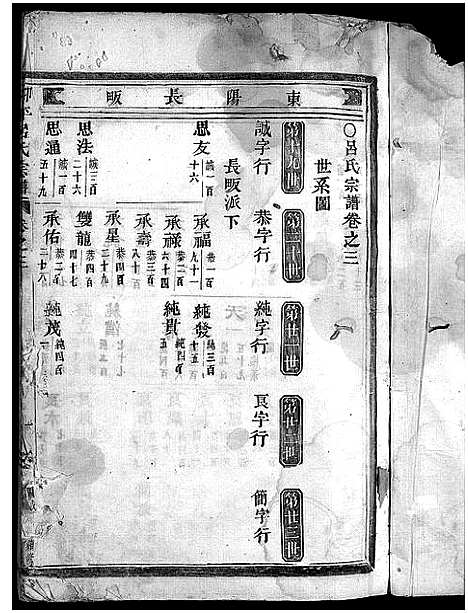 東陽長畈
○呂氏宗譜卷之三
世系圖
第十九世
第二十世
第廿一世
第廿二世
第廿三世
誠字行
恭字行
純字行
良字行
簡字行
長畈派下
思友
誠一百十六
承福
恭一百九十一
純發
純三百十五
承祿
恭二百六十四
純貴
純四百五
承壽
恭三百八十
思法
誠三百二十六
承星
恭四百二十九
雙龍
恭四百四十七
思通
誠一百五十九
承佑
恭二百二十八
純茂
純四百一
呂氏宗譜